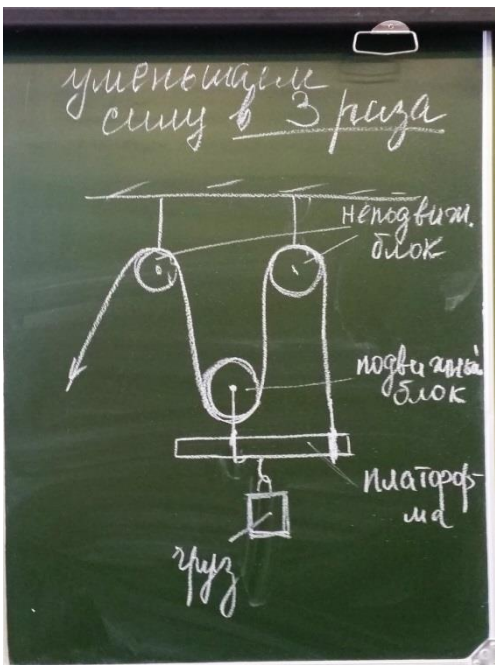 уменьшаем
силу в 3 раза
неподвиж.
блок
подвижный
блок
платфор-
ма
груз